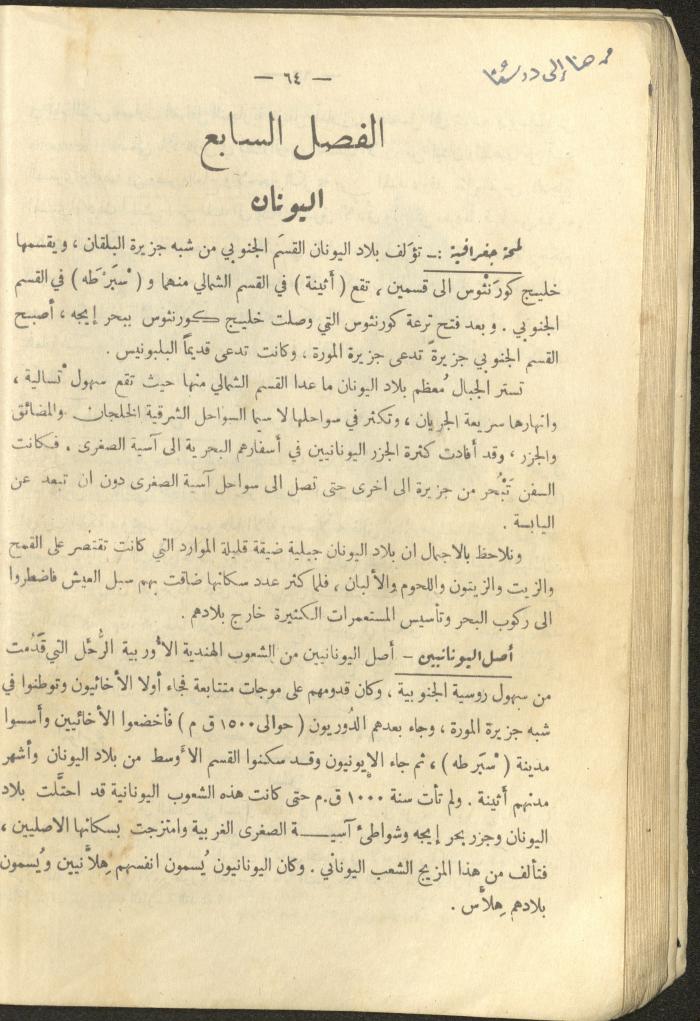 من هنا إلى درسنا
— ٦٤ —
الفصل السابع
اليونان
لمحة جغرافية :ـ تؤلف بلاد اليونان القسم الجنوبي من شبه جزيرة البلقان ، ويقسمها
خليج كورَنْثوس الى قسمين ، تقع ( أثينة ) في القسم الشمالي منهما و ( سْبَرْطه ) في القسم
الجنوبي . وبعد فتح ترعة كورنثوس التي وصلت خليج كورنثوس ببحر إيجه ، أصبح
القسم الجنوبي جزيرةً تدعى جزيرة المورة ، وكانت تدعى قديماً البلبونيس .
تستر الجبال مُعظم بلاد اليونان ما عدا القسم الشمالي منها حيث تقع سهول تْسالية ،
وانهارها سريعة الجريان ، وتكثر في سواحلها لا سيما السواحل الشرقية الخلجان والمضائق
والجزر ، وقد أفادت كثرة الجزر اليونانيين في أسفارهم البحرية الى آسية الصغرى . فكانت
السفن تَبْحُر من جزيرة الى اخرى حتى تصل الى سواحل آسية الصغرى دون ان تبعد عن
اليابسة .
ونلاحظ بالاجمال ان بلاد اليونان جبلية ضيقة قليلة الموارد التي كانت تقتصر على القمح
والزيت والزيتون واللحوم والألبان ، فلما كثر عدد سكانها ضاقت بهم سبل العيش فاضطروا
الى ركوب البحر وتأسيس المستعمرات الكثيرة خارج بلادهم .
أصل اليونانيين – أصل اليونانيين من الشعوب الهندية الأوربية الرُّحَّل التي قَدُمت
من سهول روسية الجنوبية ، وكان قدومهم على موجات متتابعة فجاء أولا الأخائيون وتوطنوا في
شبه جزيرة المورة ، وجاء بعدهم الدُوريون ( حوالى ١٥٠٠ ق م ) فأخضعوا الأخائيين وأسسوا
مدينة ( سْبَرطه ) ، ثم جاء الإيونيون وقد سكنوا القسم الأوسط من بلاد اليونان وأشهر
مدنهم أثينة . ولم تأت سنة ١٠٠٠ ق.م حتى كانت هذه الشعوب اليونانية قد احتلَّت بلاد
اليونان وجزر بحر إيجه وشواطئ آسيـــة الصغرى الغربية وامتزجت بسكانها الاصليين ،
فتألف من هذا المزيج الشعب اليوناني . وكان اليونانيون يُسمون انفسهم هِلاَّنيين ويُسمون
بلادهم هِلاَّس .